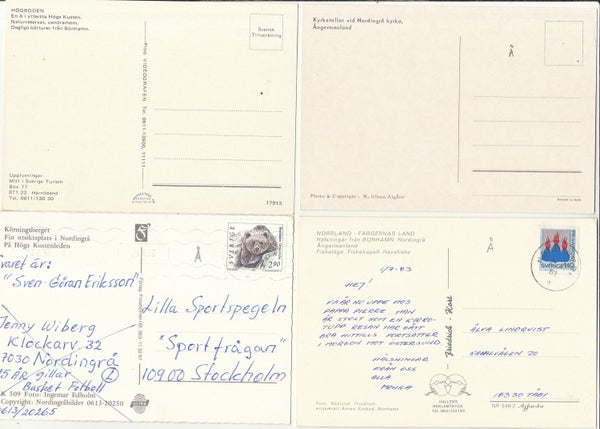 HÖGBODEN
En ö i yttersta Höga Kusten.
Naturreservat, vandrarhem.
Dagliga båtturer från Bönhamn.
Svensk
Tillverkning
Prod. VIDEOGRAFEN Tel. 0611-13600, 11111
Upplysningar:
Mitt i Sverige Turism
Box 77
871 22 Härnösand
Tel. 0611/130 30
17913
Kyrkstallar vid Nordingrå kyrka,
Ångermanland
Å
Photo & Copyright : N. Olsson Algård
Köttningsberget
Fin utsiktsplats i Nordingrå
På Höga Kustenleden
Å
SVERIGE
2.90
Svaret är:
"Sven Göran Eriksson"
Jenny Wiberg
Klockarv. 32
87030 Nordingrå
15 ÅR gillar
Basket Fotboll
K 509 Foto: Ingemar Edholm
Copyright: Nordingråbilder 0613-20250
0613/20265
Lilla Sportspegeln
"Sportfrågan"
10900 Stockholm
NORRLAND FÄRGERNAS LAND
Hälsningar från BÖNHAMN, Nordingrå
Ångermanland
Fiskeläge, Fiskekapell, Havsfiske
Å
SVERIGE
1/7-83
HEJ!
VI ÄR NU UPPE HOS
PAPPA PIERRE HAN
ÄR STOLT SOM EN KYRKO-
TUPP. RESAN HAR GÅTT
BRA HITTILS FORTSÄTTER
I MORGON MOT ÖSTERSUND
HÄLSNINGAR
FRÅN OSS
ALLA
MONICA
ÄLVA LINDKVIST
18330 TÄBY
HALLENS
REKLAMTRYCK
Foto Haslund Friedrich
ensamrätt Arnes Kiosk, Bönhamn
NR 549-7